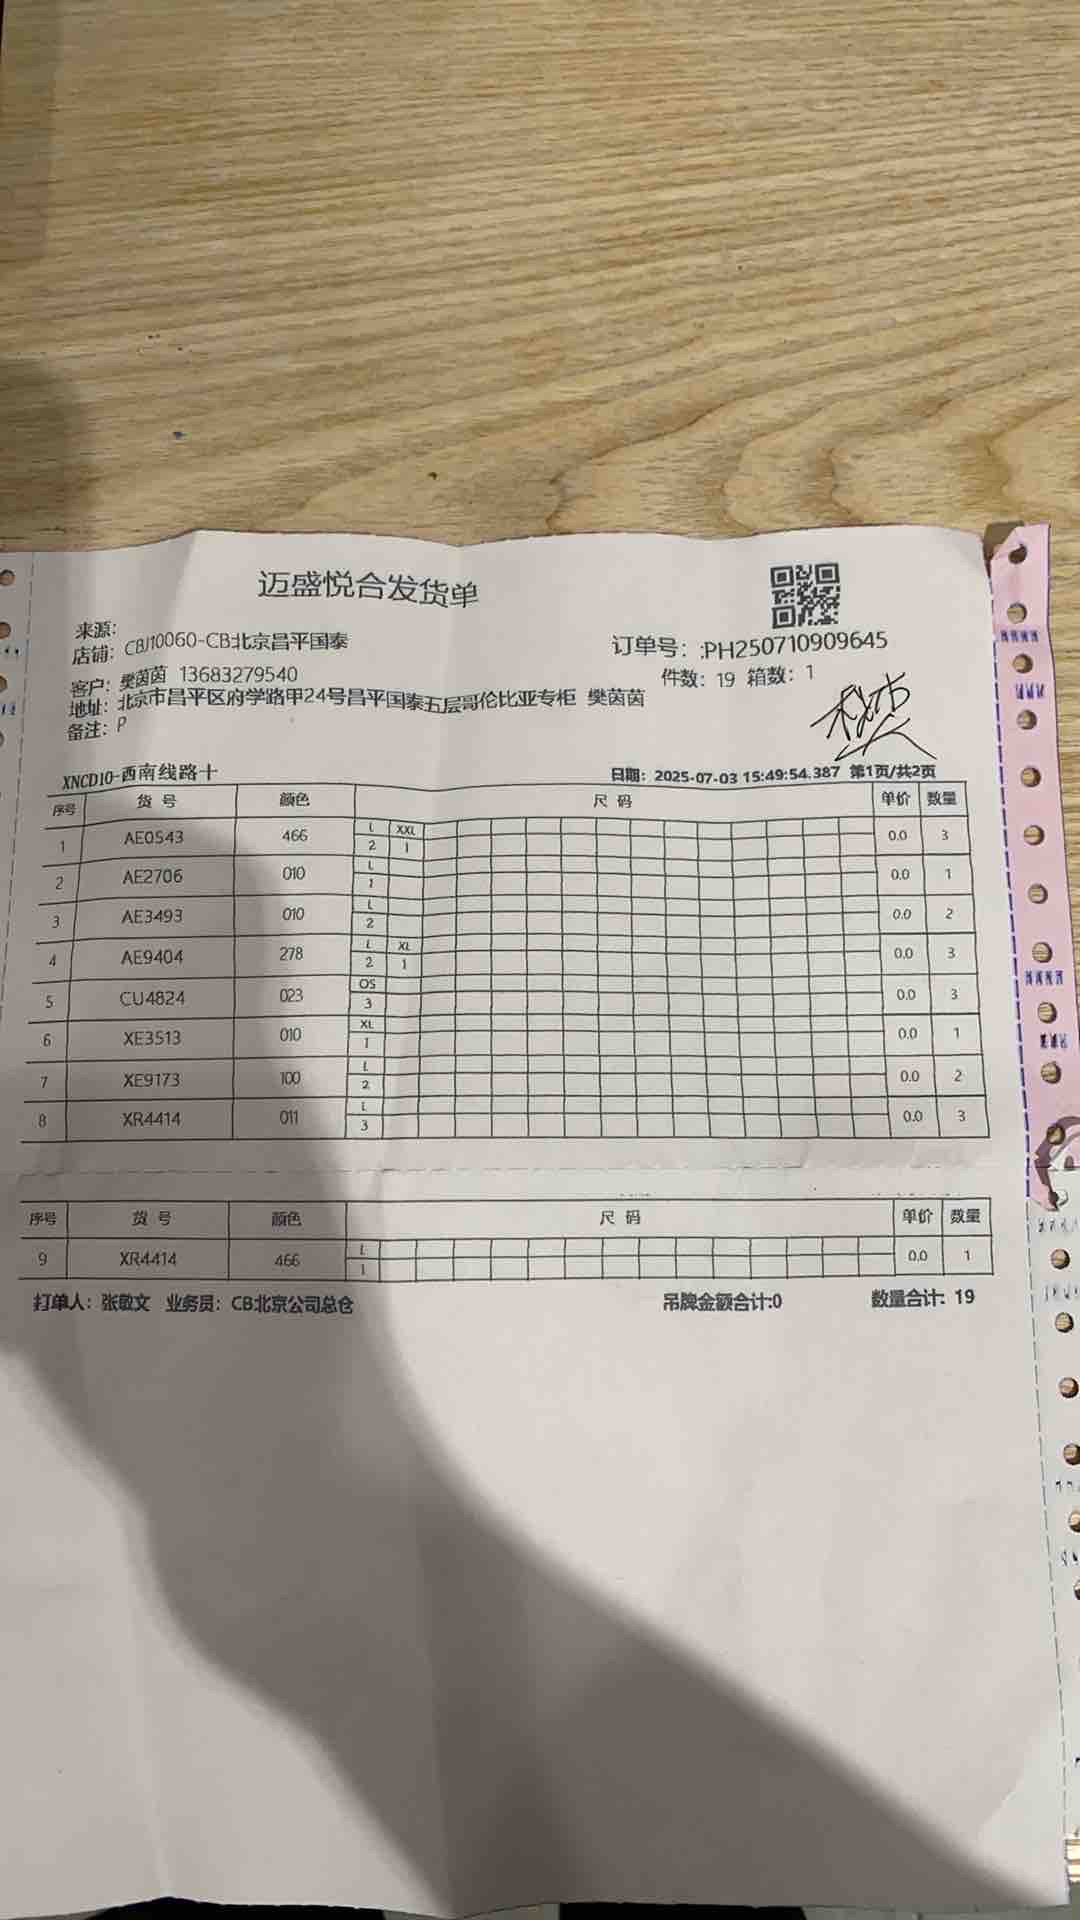 迈盛悦合发货单
来源:
店铺: CBJ10060-CB北京昌平国泰
订单号: :PH250710909645
客户: 樊茵茵 13683279540
件数: 19 箱数: 1
地址: 北京市昌平区府学路甲24号昌平国泰五层哥伦比亚专柜 樊茵茵
备注: P
XNCD10-西南线路十
日期: 2025-07-03 15:49:54.387 第1页/共2页
序号 货 号 颜色 尺 码 单价 数量
1 AE0543 466 L XXL 0.0 3
2 1
2 AE2706 010 L 0.0 1
1
3 AE3493 010 L 0.0 2
2
4 AE9404 278 L XL 0.0 3
2 1
5 CU4824 023 OS 0.0 3
3
6 XE3513 010 XL 0.0 1
1
7 XE9173 100 L 0.0 2
2
8 XR4414 011 L 0.0 3
3
序号 货 号 颜色 尺 码 单价 数量
9 XR4414 466 L 0.0 1
1
打单人: 张敏文 业务员: CB北京公司总仓 吊牌金额合计:0 数量合计: 19